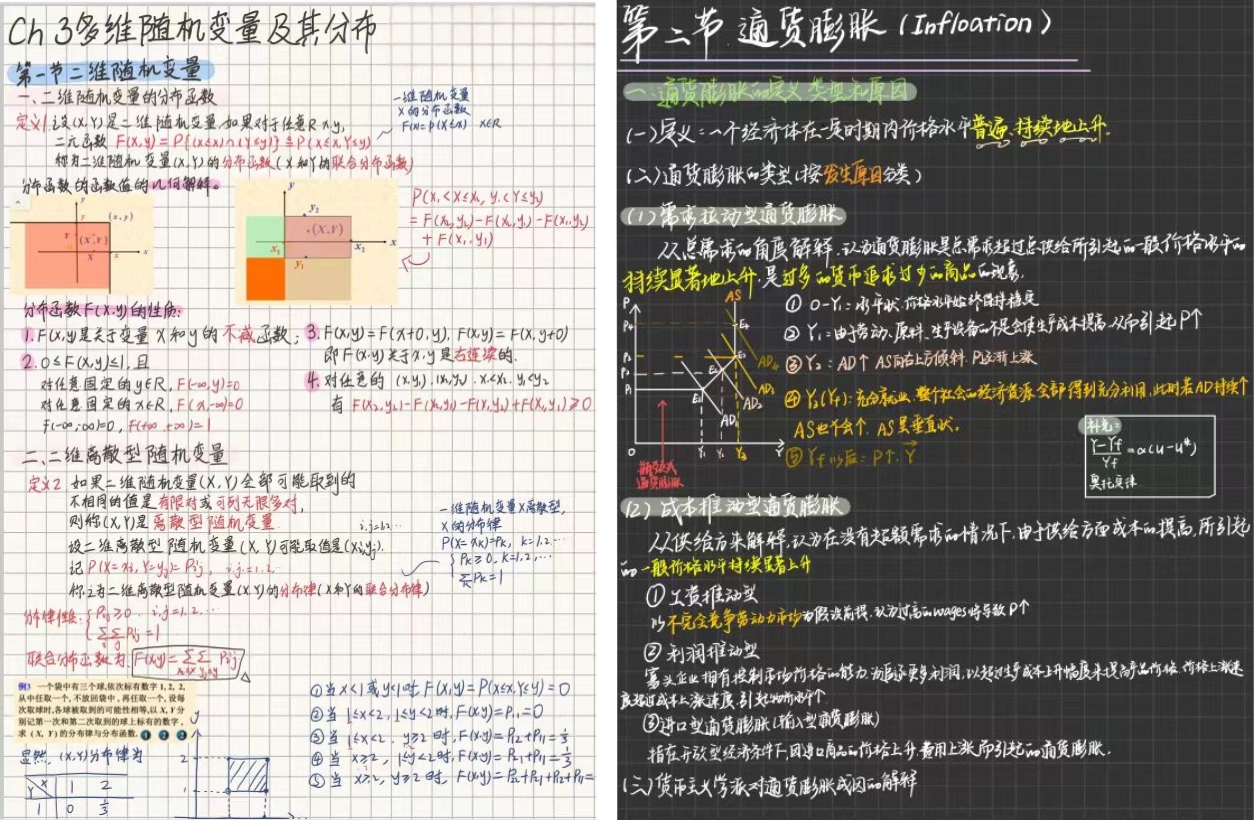 Ch 3多维随机变量及其分布
第一节二维随机变量
一、二维随机变量的分布函数
定义1.设(X,Y)是二维随机变量,如果对于任意R x,y,
二元函数 F(x,y)=P{(X≤x)∩(Y≤y)}≜P(X≤x,Y≤y)
称为二维随机变量(X,Y)的分布函数(X和Y的联合分布函数)
一维随机变量
X的分布函数
F(x)=P(X≤x) x∈R
分布函数的函数值的几何解释。
y
(x,y)
(X,Y)
x
y
y₂
(X,Y)
x₁
x₂
x
y₁
P(x₁<X≤x₂, y₁<Y≤y₂)
=F(x₂,y₂)-F(x₂,y₁)-F(x₁,y₂)
+F(x₁,y₁)
分布函数F(x,y)的性质:
1.F(x,y)是关于变量x和y的不减函数;
2.0≤F(x,y)≤1,且
对任意固定的y∈R,F(-∞,y)=0
对任意固定的x∈R,F(x,-∞)=0
F(-∞,-∞)=0,F(+∞,+∞)=1
3.F(x,y)=F(x+0,y),F(x,y)=F(x,y+0)
即F(x,y)关于x,y是右连续的.
4.对任意的(x₁,y₁),(x₂,y₂),x₁<x₂,y₁<y₂
有F(x₂,y₂)-F(x₂,y₁)-F(x₁,y₂)+F(x₁,y₁)≥0
二、二维离散型随机变量
定义2 如果二维随机变量(X,Y)全部可能取到的
不相同的值是有限对或可列无限多对,
则称(X,Y)是离散型随机变量
设二维离散型随机变量(X,Y)可能取值是(xi,yj),
i,j=1,2,…
记P(X=xi,Y=yj)=Pij, i,j=1,2,…
称之为二维离散型随机变量(X,Y)的分布律(X和Y的联合分布律)
一维随机变量X离散型,
X的分布律
P(X=xk)=Pk, k=1,2,…
Pk≥0, k=1,2,…
∑Pk=1
分布律性质:{Pij≥0, i,j=1,2,…
∑∑Pij=1
联合分布函数为 F(x,y)=∑∑Pij
例3 一个袋中有三个球,依次标有数字1,2,2,
从中任取一个,不放回袋中,再任取一个,设每
次取球时,各球被取到的可能性相等,以X,Y分
别记第一次和第二次取到的球上标有的数字,
求(X,Y)的分布律与分布函数.
1 2 2
显然,(X,Y)分布律为
X 1 2
Y
1 0 1/3
y
2
1
①当x<1或y<1时,F(x,y)=P(X≤x,Y≤y)=0
②当1≤x<2,1≤y<2时,F(x,y)=P₁₁=0
③当1≤x<2,y≥2时,F(x,y)=P₁₂+P₁₁=1/3
④当x≥2,1≤y<2时,F(x,y)=P₂₁+P₁₁=1/3
⑤当x≥2,y≥2时,F(x,y)=P₂₂+P₂₁+P₁₂+P₁₁=
第二节 通货膨胀(Infloation)
一、通货膨胀的定义类型和原因
(一)定义:一个经济体在一定时期内价格水平普遍、持续地上升.
(二)通货膨胀的类型(按发生原因分类)
(1)需求拉动型通货膨胀
从总需求的角度解释,认为通货膨胀是总需求超过总供给所引起的一般价格水平的
持续显著地上升,是过多的货币追求过少的商品的现象.
P
AS
AD₄
AD₃
AD₂
AD₁
E₄
E₃
E₂
E₁
P₄
P₃
P₂
P₁
0
Y₁
Y₂
Y₃
Y
瓶颈式
通货膨胀
① 0-Y₁:水平状,价格水平始终保持稳定
② Y₁:由于劳动、原料、生产设备的不足会使生产成本提高,从而引起P↑
③ Y₂:AD↑ AS向右上方倾斜,P逐渐上涨
④ Y₃(Yf):充分就业,整个社会的经济资源全部得到充分利用,此时若AD持续↑
AS也不会↑,AS呈垂直状.
⑤ Yf以后:P↑,Y
补充:
Y-Yf/Yf=-α(u-u*)
奥肯定律
(2)成本推动型通货膨胀
从供给方来解释,认为在没有超额需求的情况下,由于供给方面成本的提高,所引起
的一般价格水平持续显著上升
①工资推动型
以不完全竞争劳动力市场为假设前提,认为过高的wages将导致P↑
②利润推动型
寡头企业拥有控制市场价格的能力,为追逐更多利润,以超过生产成本上升幅度来提高产品价格,价格上涨速
度超过成本上涨速度,引起物价水平↑
③进口型通货膨胀(输入型通货膨胀)
指在开放型经济条件下,因进口商品的价格上升,费用上涨而引起的通货膨胀.
(三)货币主义学派对通货膨胀成因的解释